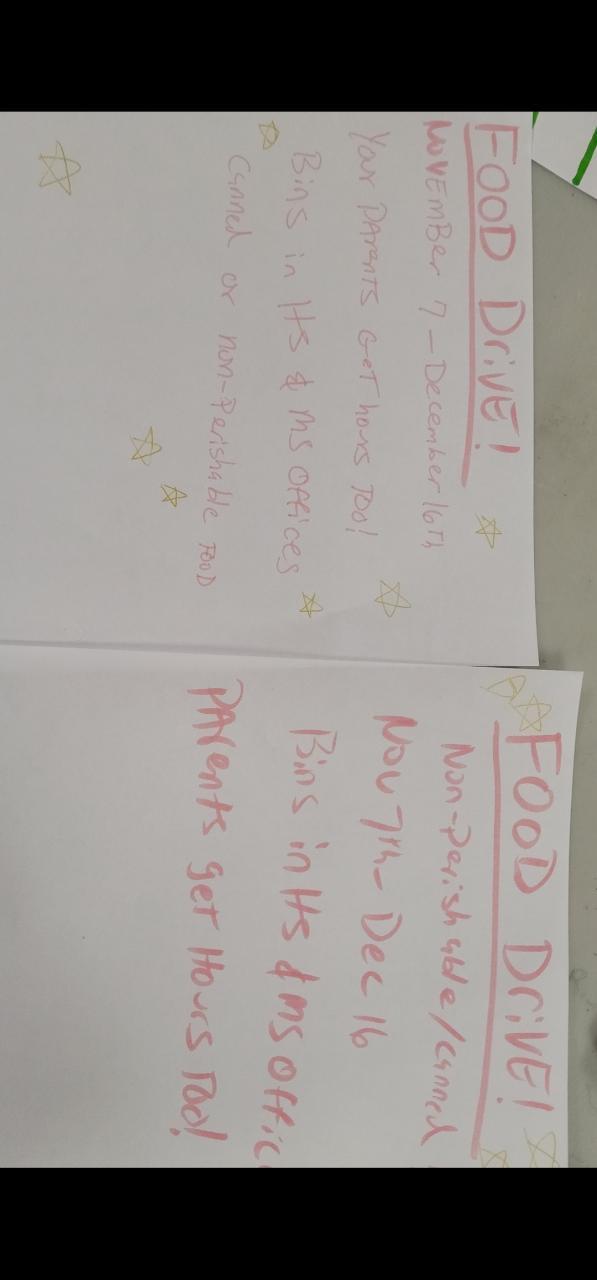 FOOD DriVE!
NOVEmBer 7 - December 16Th
Your PArents GeT hours Too!
Bins in HS & MS OFFices
canned or non-Perishable FOOD
FOOD DriVE!
Non-Perishable/canned
Nov 7th - Dec 16
Bins in HS & MS Offic
PArents get Hours Too!